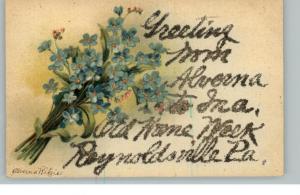 Greeting
from
Alverna
to Ina.
Old Home Week
Reynoldsville Pa.